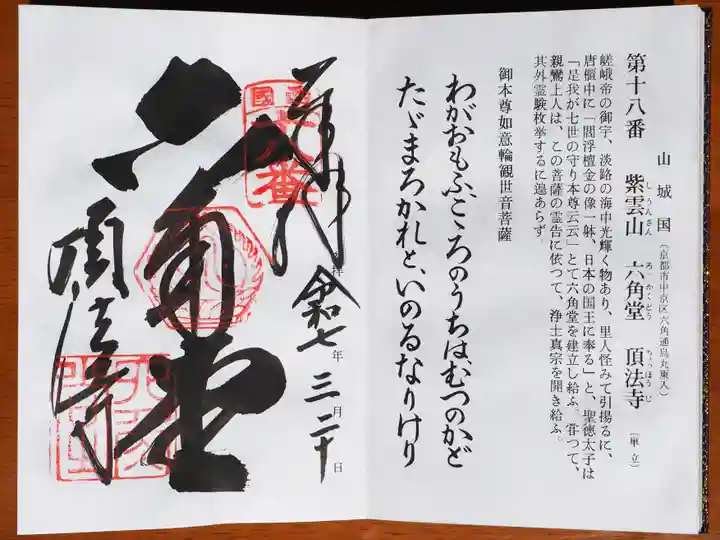 第十八番
山城国(京都市中京区六角通烏丸東入)
紫雲山 六角堂 頂法寺(単立)
しうんざん ろっかくどう ちょうほうじ
嵯峨帝の御宇、淡路の海中光輝く物あり、里人怪みて引揚るに、
唐櫃中に「閻浮檀金の像一躰、日本の国王に奉る」と、聖徳太子は
「是我が七世の守り本尊云云」とて六角堂を建立し給ふ。甞つて、
親鸞上人は、この菩薩の霊告に依つて、浄土真宗を開き給ふ。
其外霊験枚挙するに遑あらず。
御本尊如意輪観世音菩薩
わがおもふこゝろのうちは、むつのかど
たゞまろかれと、いのるなりけり
奉拝
令和七年三月二十日
六角堂
頂法寺
十八番